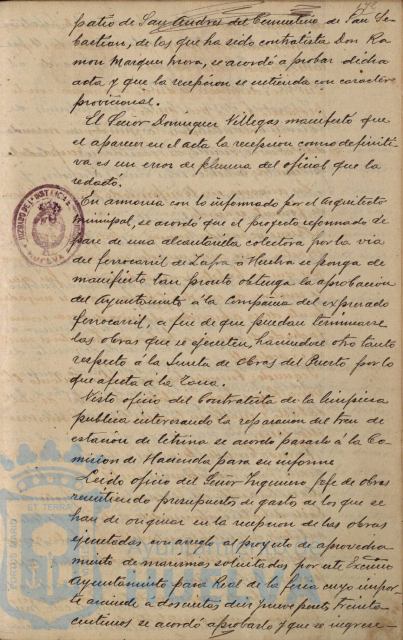 patio de San Andres del Cementerio de San Se-
bastian, de los que ha sido contratista Don Ra-
mon Marquez Mora, se acordó aprobar dicha
acta y que la recepcion se entienda con caracter
provisional.
El Señor Dominguez Villegas manifestó que
el aparecer en el acta la recepcion como definiti-
va es un error de pluma del oficial que la
redactó.
En armonia con lo informado por el Arquitecto
Municipal, se acordó que el proyecto reformado de
pare de una alcantarilla colectora por la via
del ferrocarril de Zafra á Huelva se ponga de
manifiesto tan pronto obtenga la aprobacion
del Ayuntamiento á la Compañia del expresado
ferrocarril, á fin de que puedan terminarse
las obras que se ejecuten, haciendose otro tanto
respecto á la Junta de Obras del Puerto por lo
que afecta á la Zona.
Visto oficio del Contratista de la limpieza
publica interesando la reparacion del tren de
estacion de letrina se acordó pasarlo á la Co-
mision de Hacienda para su informe
Leido oficio del Señor Ingeniero Jefe de obras
remitiendo presupuesto de gastos de los que se
han de originar en la recepcion de las obras
ejecutadas con arreglo al proyecto de aprovecha-
miento de marismas solicitados por este Excmo
Ayuntamiento para Real de la feria cuyo impor-
te asciende á doscientas diez y nueve pesetas treinta
centimos se acordó aprobarlo y que se ingrese
JUZGADO DE 1ª INSTANCIA
HUELVA
ET TERRA
Ayuntamiento
HUELVA